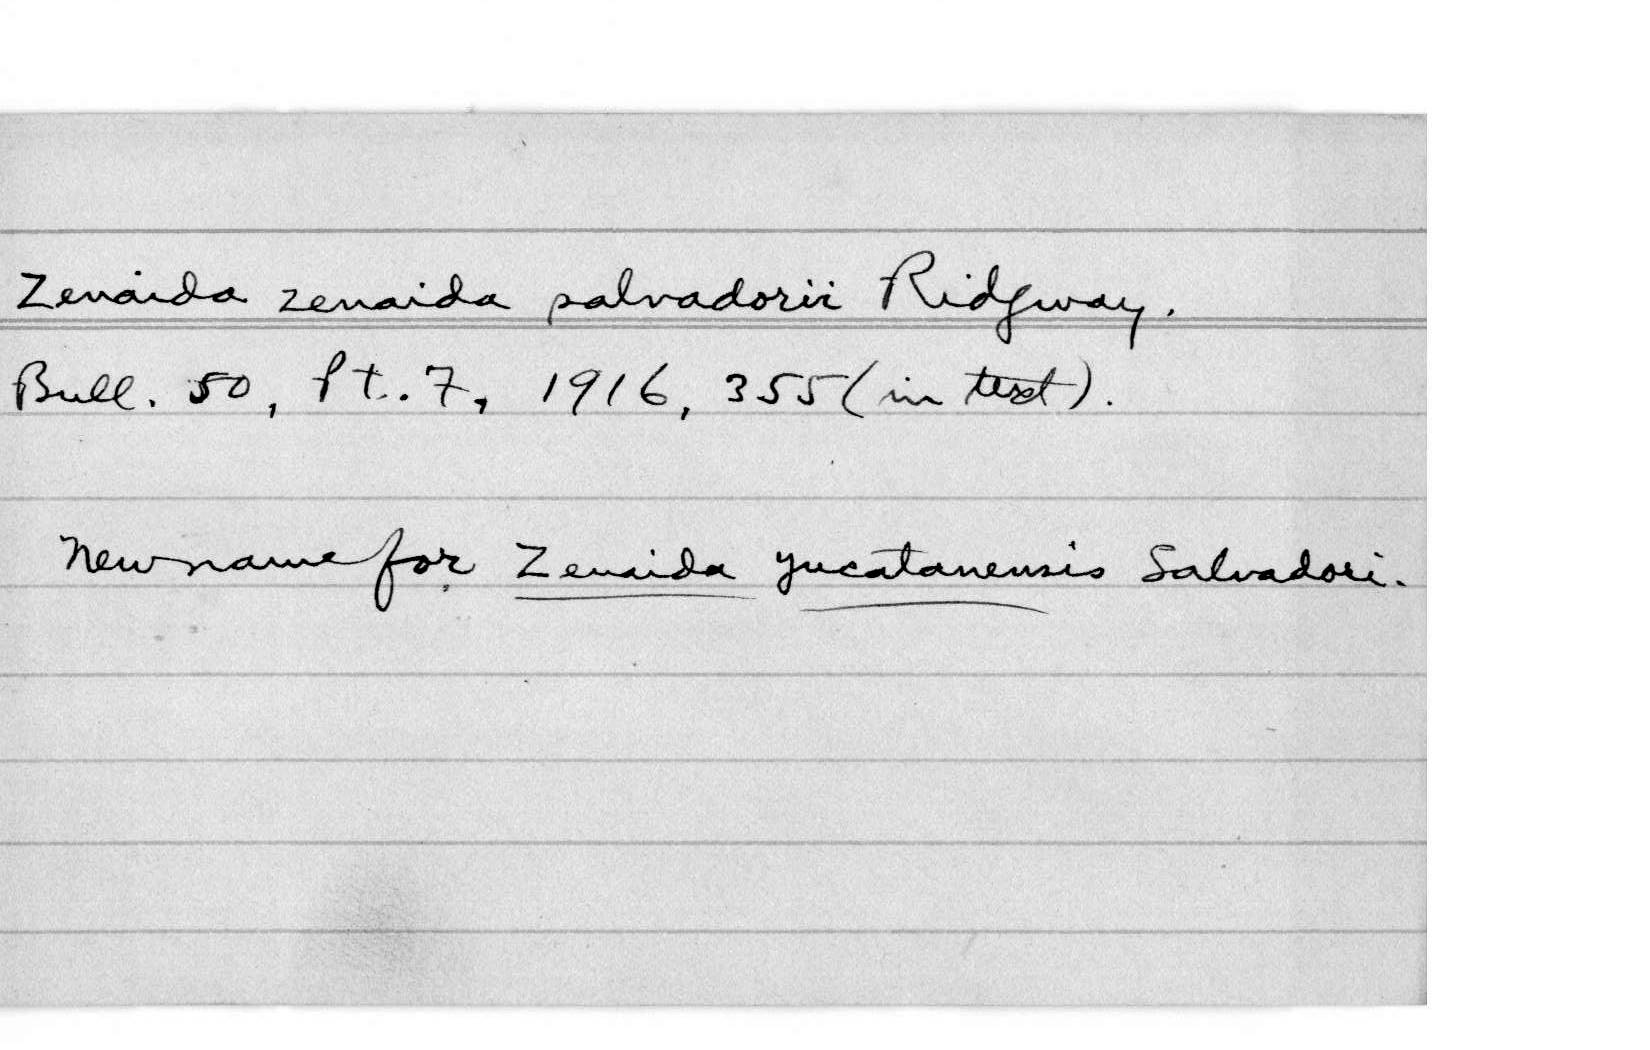 Zenaida zenaida salvadorii Ridgway.
Bull. 50, Pt. 7, 1916, 355 (in text).
New name for Zenaida yucatanensis Salvadori.